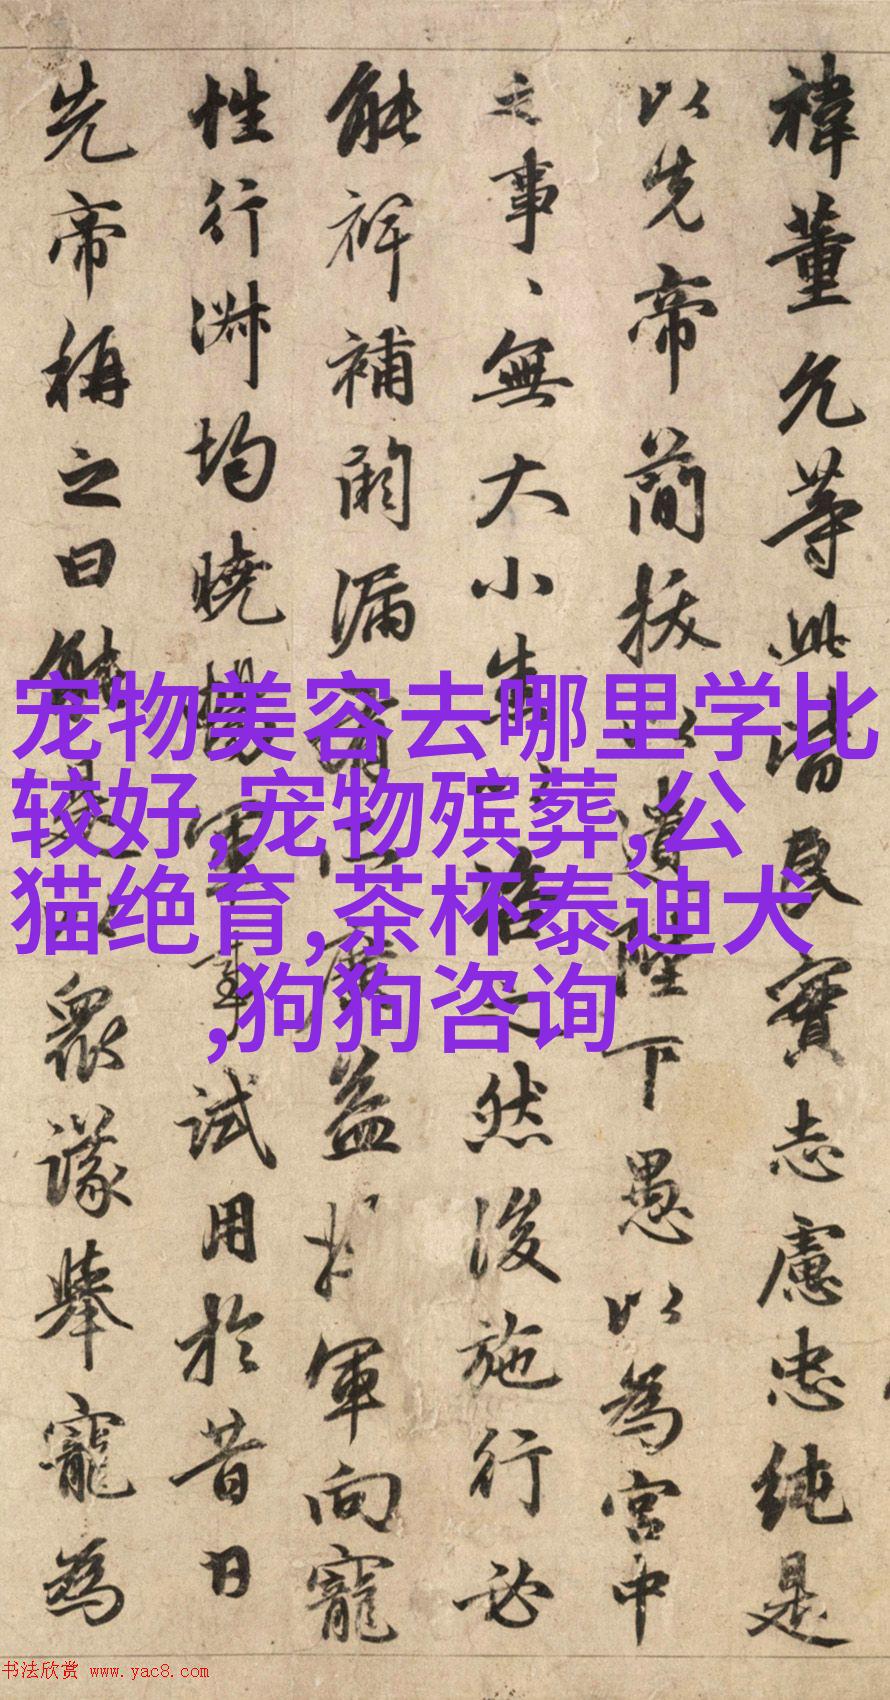 禕董允等此皆良實志慮忠純是
以先帝簡拔以遺陛下愚以為宮中
之事、無大小事咨之然後施行必
能裨補闕漏有所廣益將軍向寵
性行淋均曉暢軍事試用於昔日
先帝稱之曰能是以眾議舉寵為
宠物美容去哪里学比
较好,宠物殡葬,公
猫绝育,茶杯泰迪犬
,狗狗咨询
书法欣赏 www.yac8.com